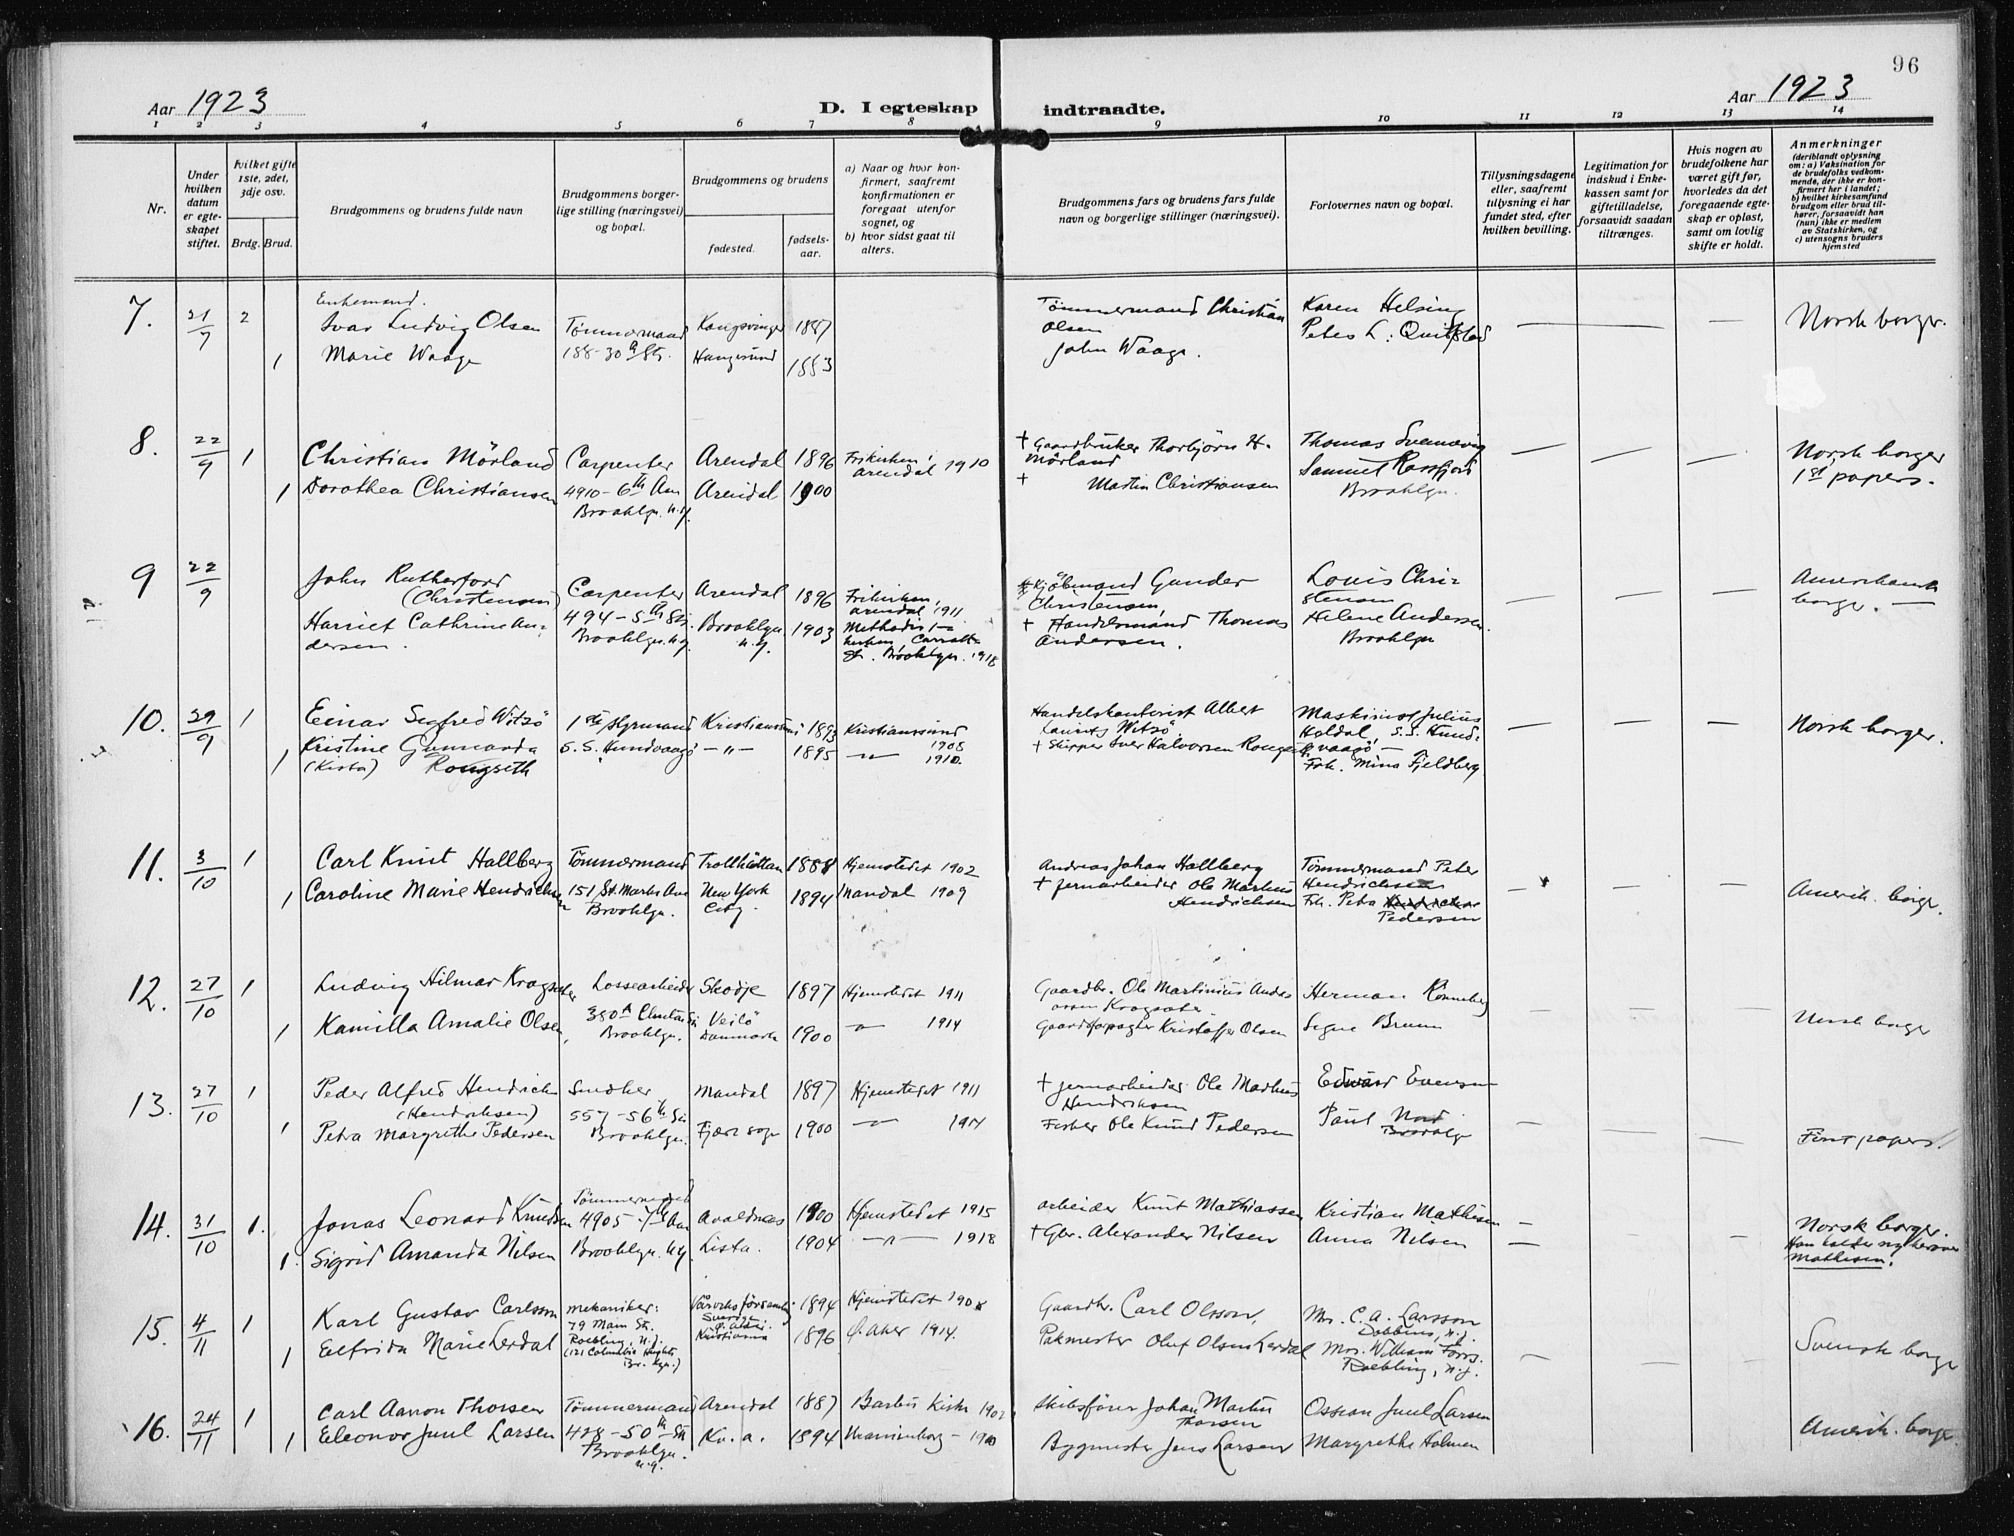 96
Aar 1923
D. I egteskap indtraadte.
Aar 1923
1 2 3 4 5 6 7 8 9 10 11 12 13 14
Nr.
Under hvilken datum er egteskapet stiftet.
Hvilket gifte 1ste, 2det, 3dje osv.
Brdg. Brud.
Brudgommens og brudens fulde navn
Brudgommens borgerlige stilling (næringsvei) og bopæl.
Brudgommens og brudens
fødested.
fødselsaar.
a) Naar og hvor konfirmert, saafremt konfirmationen er foregaat utenfor sognet, og
b) hvor sidst gaat til alters.
Brudgommens fars og brudens fars fulde navn og borgerlige stillinger (næringsvei).
Forlovernes navn og bopæl.
Tillysningsdagene eller, saafremt tillysning ei har fundet sted, efter hvilken bevilling.
Legitimation for indskud i Enkekassen samt for giftetilladelse, forsaavidt saadan tiltrænges.
Hvis nogen av brudefolkene har været gift før, hvorledes da det foregaaende egteskap er opløst, samt om lovlig skifte er holdt.
Anmerkninger
(deriblandt oplysning om: a) Vaksination for de brudefolks vedkommende, der ikke er konfirmert her i landet; b) hvilket kirkesamfund brudgom eller brud tilhører, forsaavidt han (hun) ikke er medlem av Statskirken, og c) utensogns bruders hjemsted
7. 21/7 2 Enkemand.
Ivar Ludvig Olsen Tømmermand Kongsvinger 1887 Tømmermand Christian Olsen Karen Helsing — — — Norsk borger.
1 Marie Waage 188-30th Str. Haugesund 1883 John Waage. Peter L. Quifstad
8. 22/9 1 Christian Mörland Carpenter Arendal 1896 Frikirken i Arendal 1910 + Gaardbruker Thorbjörn H. Mörland Thomas Svenevig — — — Norsk borger
1 Dorothea Christiansen 4910-6th Ave Brooklyn. N.Y. Arendal 1900 + Martin Christiansen Samuel Rossfjord Brooklyn. 1st papers.
9 22/9 John Rutherford (Christensen) Carpenter Arendal 1896 Frikirken, Arendal 1911 Kjøbmand Gunder Christensen, Louis Christensen — — — Amerikansk borger. —
Harriet Cathrine Andersen. 494-5th Str. Brooklyn. N.Y. Brooklyn N.Y. 1903 Methodistkirken Carroll St. Brooklyn. 1918 + Handelsmand Thomas Andersen. Helene Andersen. Brooklyn
10. 29/9 1 Einar Sigfred Witsö 1ste styrmand Kristianssund 1893 Kristianssund 1908 Handelskontorist Albert Laurits Witsö Maskinist Julius Holdal, S.S. Hundvaagö — — — — Norsk borger.
1 Kristine Gunnarda (Kista) Rongseth S.S. Hundvaagö —"— 1895 —"— 1910. + Skipper Iver Halvorsen Rongseth Frk. Mina Fjeldberg
11. 3/10 1 Carl Knut Hallberg Tømmermand Trollhättan 1888 Hjemstedet 1902 Andreas Johan Hallberg Tømmermand Peter Hendrichsen — — — Amerik. borger.
1 Caroline Marie Hendrichsen 151 St. Marks Ave Brooklyn. New York City. 1894 Mandal 1909 + Jernarbeider Ole Markus Hendrichsen Frk. Petra Pedersen
12. 27/10 1 Ludvig Hilmar Kragseter Lossearbeider Skodje 1897 Hjemstedet 1911 Gaardbr. Ole Martinius Andreassen Kragseter Herman Rönneberg — — — Norsk borger
1 Kamilla Amalie Olsen, 380 Clinton St. Brooklyn. Veilö Danmark 1900 —"— 1914 Gaardforpagter Kristoffer Olsen Signe Bruun
13. 27/10 1 Peder Alfred Hendrich (Hendrichsen) Snedker Mandal 1897 Hjemstedet 1911 + Jernarbeider Ole Markus Hendrichsen Edward Evensen — — — First papers.
1 Petra Margrethe Pedersen 557-56th Str. Brooklyn. Fjære sogn 1900 —"— 1914 Fisker Ole Knud Pedersen Paul Nord Brooklyn
14. 31/10 1. Jonas Leonard Knudsen Tømmermand 4905-7th Ave Avaldsnes 1900 Hjemstedet 1915 Arbeider Knut Mathiassen Kristian Mathisen — — — Norsk borger.
1. Sigrid Amanda Nilsen Brooklyn. N.Y. Lista. 1904 —"— 1918 + Gbr. Alexander Nilsen Anna Nilsen — Han kalder sig herover Mathisen.
15. 4/11 1 Karl Gustav Carlsson Mekaniker: 79 Main Str. Roebling, N.J. Sverige 1894 Hjemstedet 1908 Gaardbr. Carl Olsson, Mrs. C. A. Larsson Dobbins, N.J. — — — Svensk borger
1 Elfrida Marie Lerdal (121 Columbia Heights Brklyn.) Ø. Aker Kristiania 1896 Ø. Aker 1914. Pakmester Oluf Olsen Lerdal Mrs. William Forss. Roebling, N.J.
16. 24/11 1 Carl Aanon Thorsen Tømmermand Arendal 1887 Barbu Kirke 1902 Skibsfører Johan Martin Thorsen Ossian Juul Larsen — — — Amerik. borger
1 Eleonor Juul Larsen 428-50th Str Brooklyn. N.Y. Kr. a. 1894 Uranienborg - 1910 Bygmester Jens Larsen Margrethe Holmen